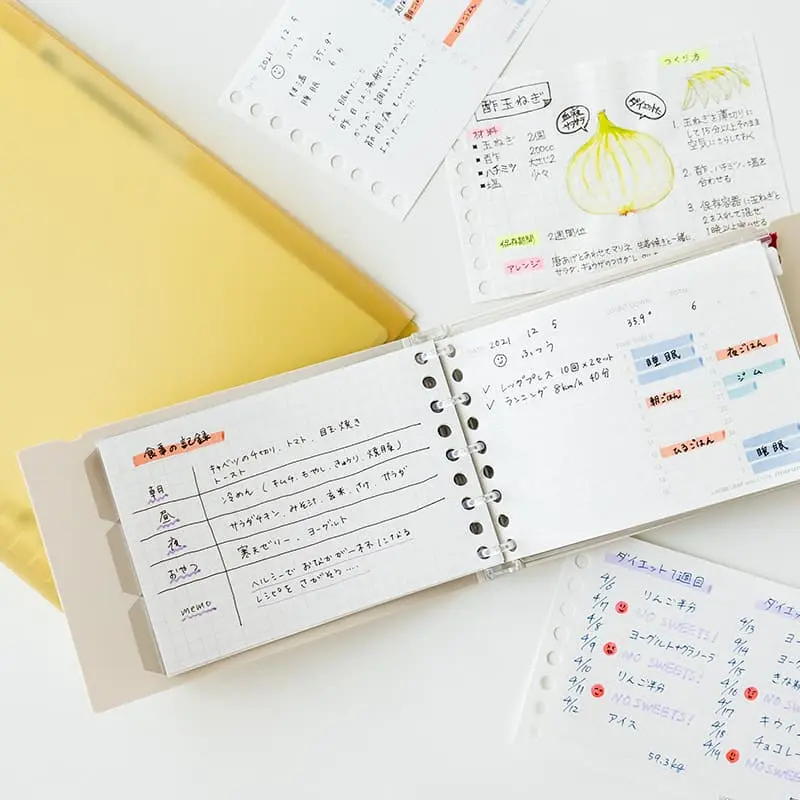 2021 12 5
ふつう
体温 35.9°
睡眠 6
よく眠れた…!
昼ごはん
ひるごはん
酢玉ねぎ
材料
玉ねぎ 2個
酢 200cc
ハチミツ 大さじ2
塩 少々
保存期間 2週間位
アレンジ
つくり方
1. 玉ねぎを薄切りに
して15分以上そのまま
空気にさらしておく
2. 酢、ハチミツ、塩を
合わせる
3. 保存容器に玉ねぎと
2を入れて混ぜ
1晩以上寝かせる
食事の記録
朝 キャベツの千切り、トマト、目玉焼き
トースト
昼 冷めん(キムチ、もやし、きゅうり、焼豚)
夜 サラダチキン、みそ汁、玄米、さけ、サラダ
おやつ 寒天ゼリー、ヨーグルト
memo ヘルシーでおなかが一杯になる
レシピをさがそう…
DATE 2021 12 5 35.9° 6
ふつう
✓ レッグプレス 10回×2セット
✓ ランニング 8km/h 40分
睡眠
朝ごはん
ひるごはん
夜ごはん
ジム
睡眠
ダイエット7週目
4/6 りんご半分
4/7 NO SWEETS!
4/8 ヨーグルト+グラノーラ
4/9 NO SWEETS!
4/10 りんご半分
4/11 NO SWEETS!
4/12 アイス
59.3kg
ダイエ
4/13
4/14
4/15
4/16
4/17
4/18
4/19